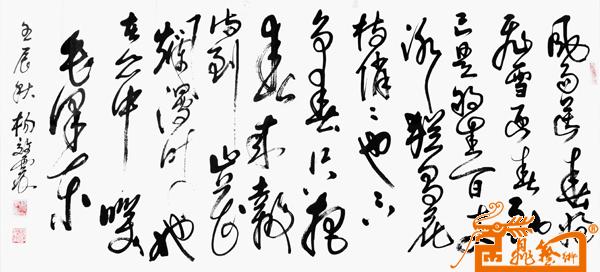 风雨送春归
飞雪迎春到
已是悬崖百丈
冰犹有花
枝俏俏也不
争春只把
春来报
待到山花
烂漫时她
在丛中笑
毛泽东
壬辰秋杨